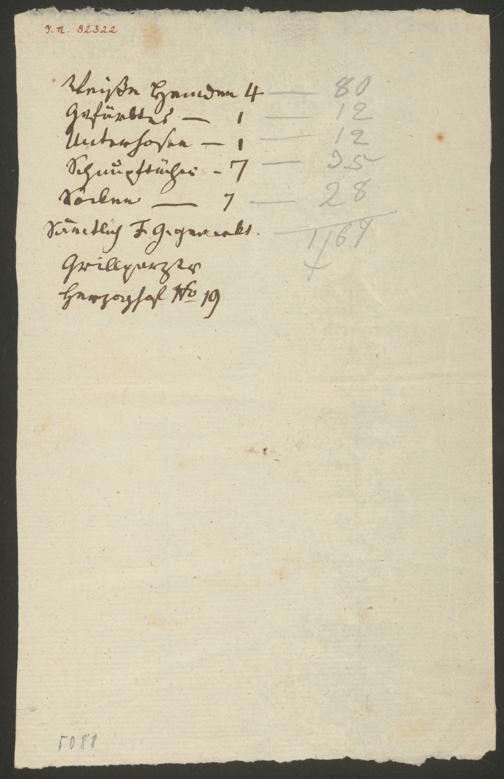 J.N. 82322
Weiße Hemden 4 — 80
Gefärbtes — 1 — 12
Unterhosen — 1 — 12
Schnupftücher - 7 — 35
Socken — 7 — 28
Sämtlich F. G. gemerkt. — 1/67
Grillparzer
Herzoghof No 19
5088